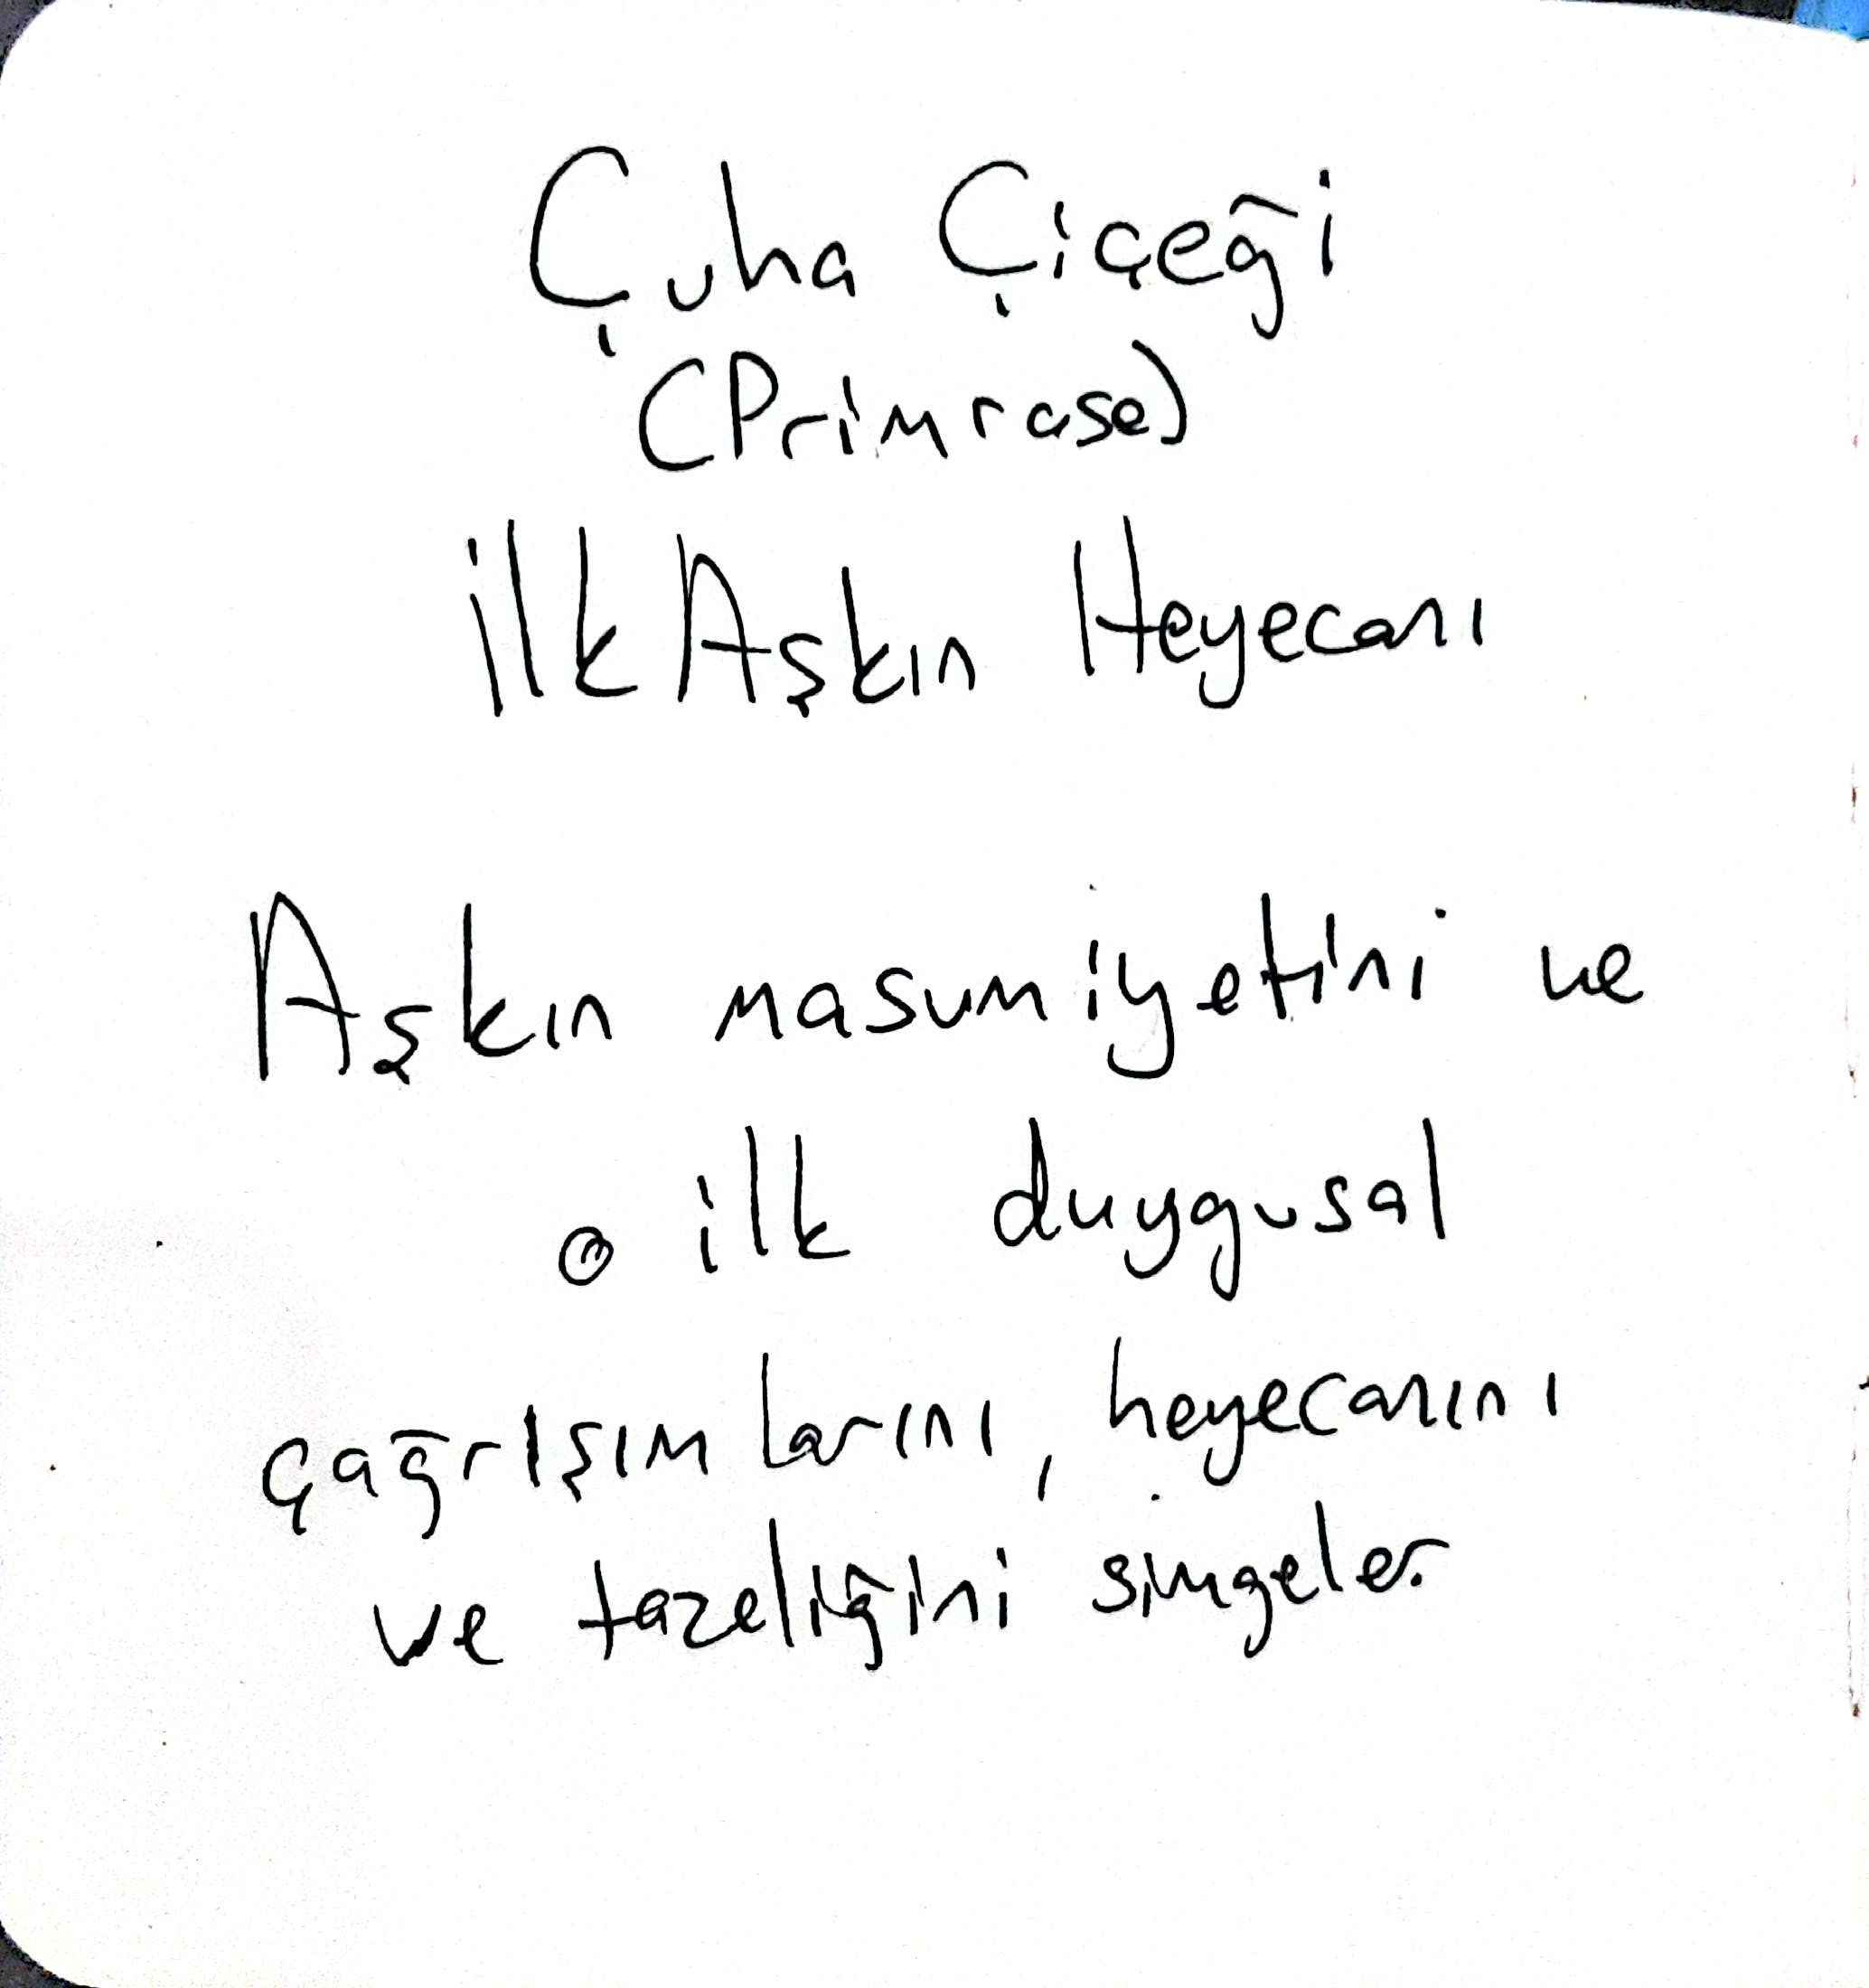 Çuha Çiçeği
(Primrose)
İlk Aşkın Heyecanı
Aşkın masumiyetini ve
o ilk duygusal
çağrışımlarını, heyecanını
ve tazeliğini simgeler.